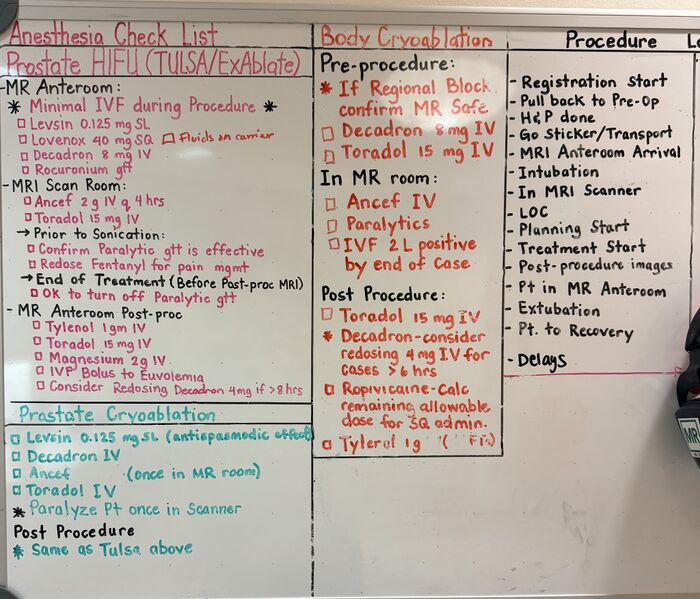 Anesthesia Check List
Prostate HIFU (TULSA/ExAblate)
- MR Anteroom:
* Minimal IVF during Procedure *
□ Levsin 0.125 mg SL
□ Lovenox 40 mg SQ □ Fluids on carrier
□ Decadron 8 mg IV
□ Rocuronium gtt
- MRI Scan Room:
□ Ancef 2g IV q 4 hrs
□ Toradol 15 mg IV
→ Prior to Sonication:
□ Confirm Paralytic gtt is effective
□ Redose Fentanyl for pain mgmt
→ End of Treatment (Before Post-proc MRI)
□ OK to turn off Paralytic gtt
- MR Anteroom Post-proc
□ Tylenol 1gm IV
□ Toradol 15 mg IV
□ Magnesium 2g IV
□ IVF Bolus to Euvolemia
□ Consider Redosing Decadron 4mg if >8hrs
Prostate Cryoablation
□ Levsin 0.125 mg SL (antispasmodic effect)
□ Decadron IV
□ Ancef (once in MR room)
□ Toradol IV
* Paralyze Pt once in Scanner
Post Procedure
* Same as Tulsa above
Body Cryoablation
Pre-procedure:
* If Regional Block
confirm MR Safe
□ Decadron 8 mg IV
□ Toradol 15 mg IV
In MR room:
□ Ancef IV
□ Paralytics
□ IVF 2L positive
by end of Case
Post Procedure:
□ Toradol 15 mg IV
* Decadron-consider
redosing 4mg IV for
cases >6 hrs
□ Ropivicaine-Calc
remaining allowable
dose for SQ admin.
□ Tylenol 1g
Procedure
- Registration Start
- Pull back to Pre-Op
- H&P done
- Go Sticker/Transport
- MRI Anteroom Arrival
- Intubation
- In MRI Scanner
- LOC
- Planning Start
- Treatment Start
- Post-procedure images
- Pt in MR Anteroom
- Extubation
- Pt. to Recovery
- Delays
MR